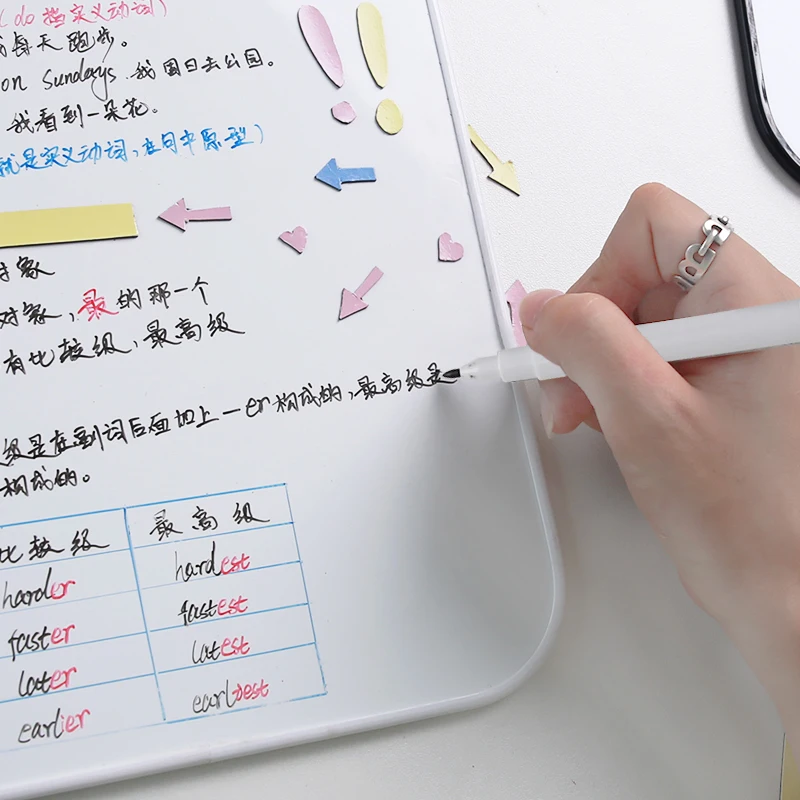 ( do 当实义动词)
我每天跑步。
on Sundays. 我周日去公园。
我看到一朵花。
就是实义动词,在句中原型)
对象
对象,最的那一个
有比较级,最高级
级是在副词后面加上-er构成的,最高级是
构成的。
比较级 最高级
harder hardest
faster fastest
later latest
earlier earliest